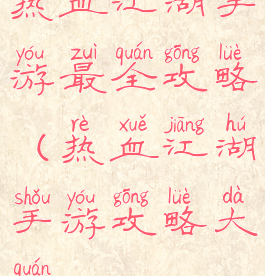 热血江湖手
yóu zuì quán gōng lüè
游最全攻略
rè xuě jiāng hú
(热血江湖
shǒu yóu gōng lüè dà
手游攻略大
quán